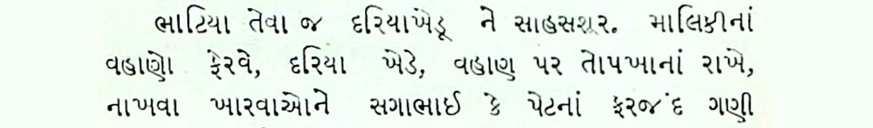 ભાટિયા તેવા જ દરિયાખેડૂ ને સાહસશૂર. માલિકીનાં
વહાણો ફેરવે, દરિયા ખેડે, વહાણ પર તોપખાનાં રાખે,
નાખવા ખારવાઓને સગાભાઈ કે પેટનાં ફરજંદ ગણી